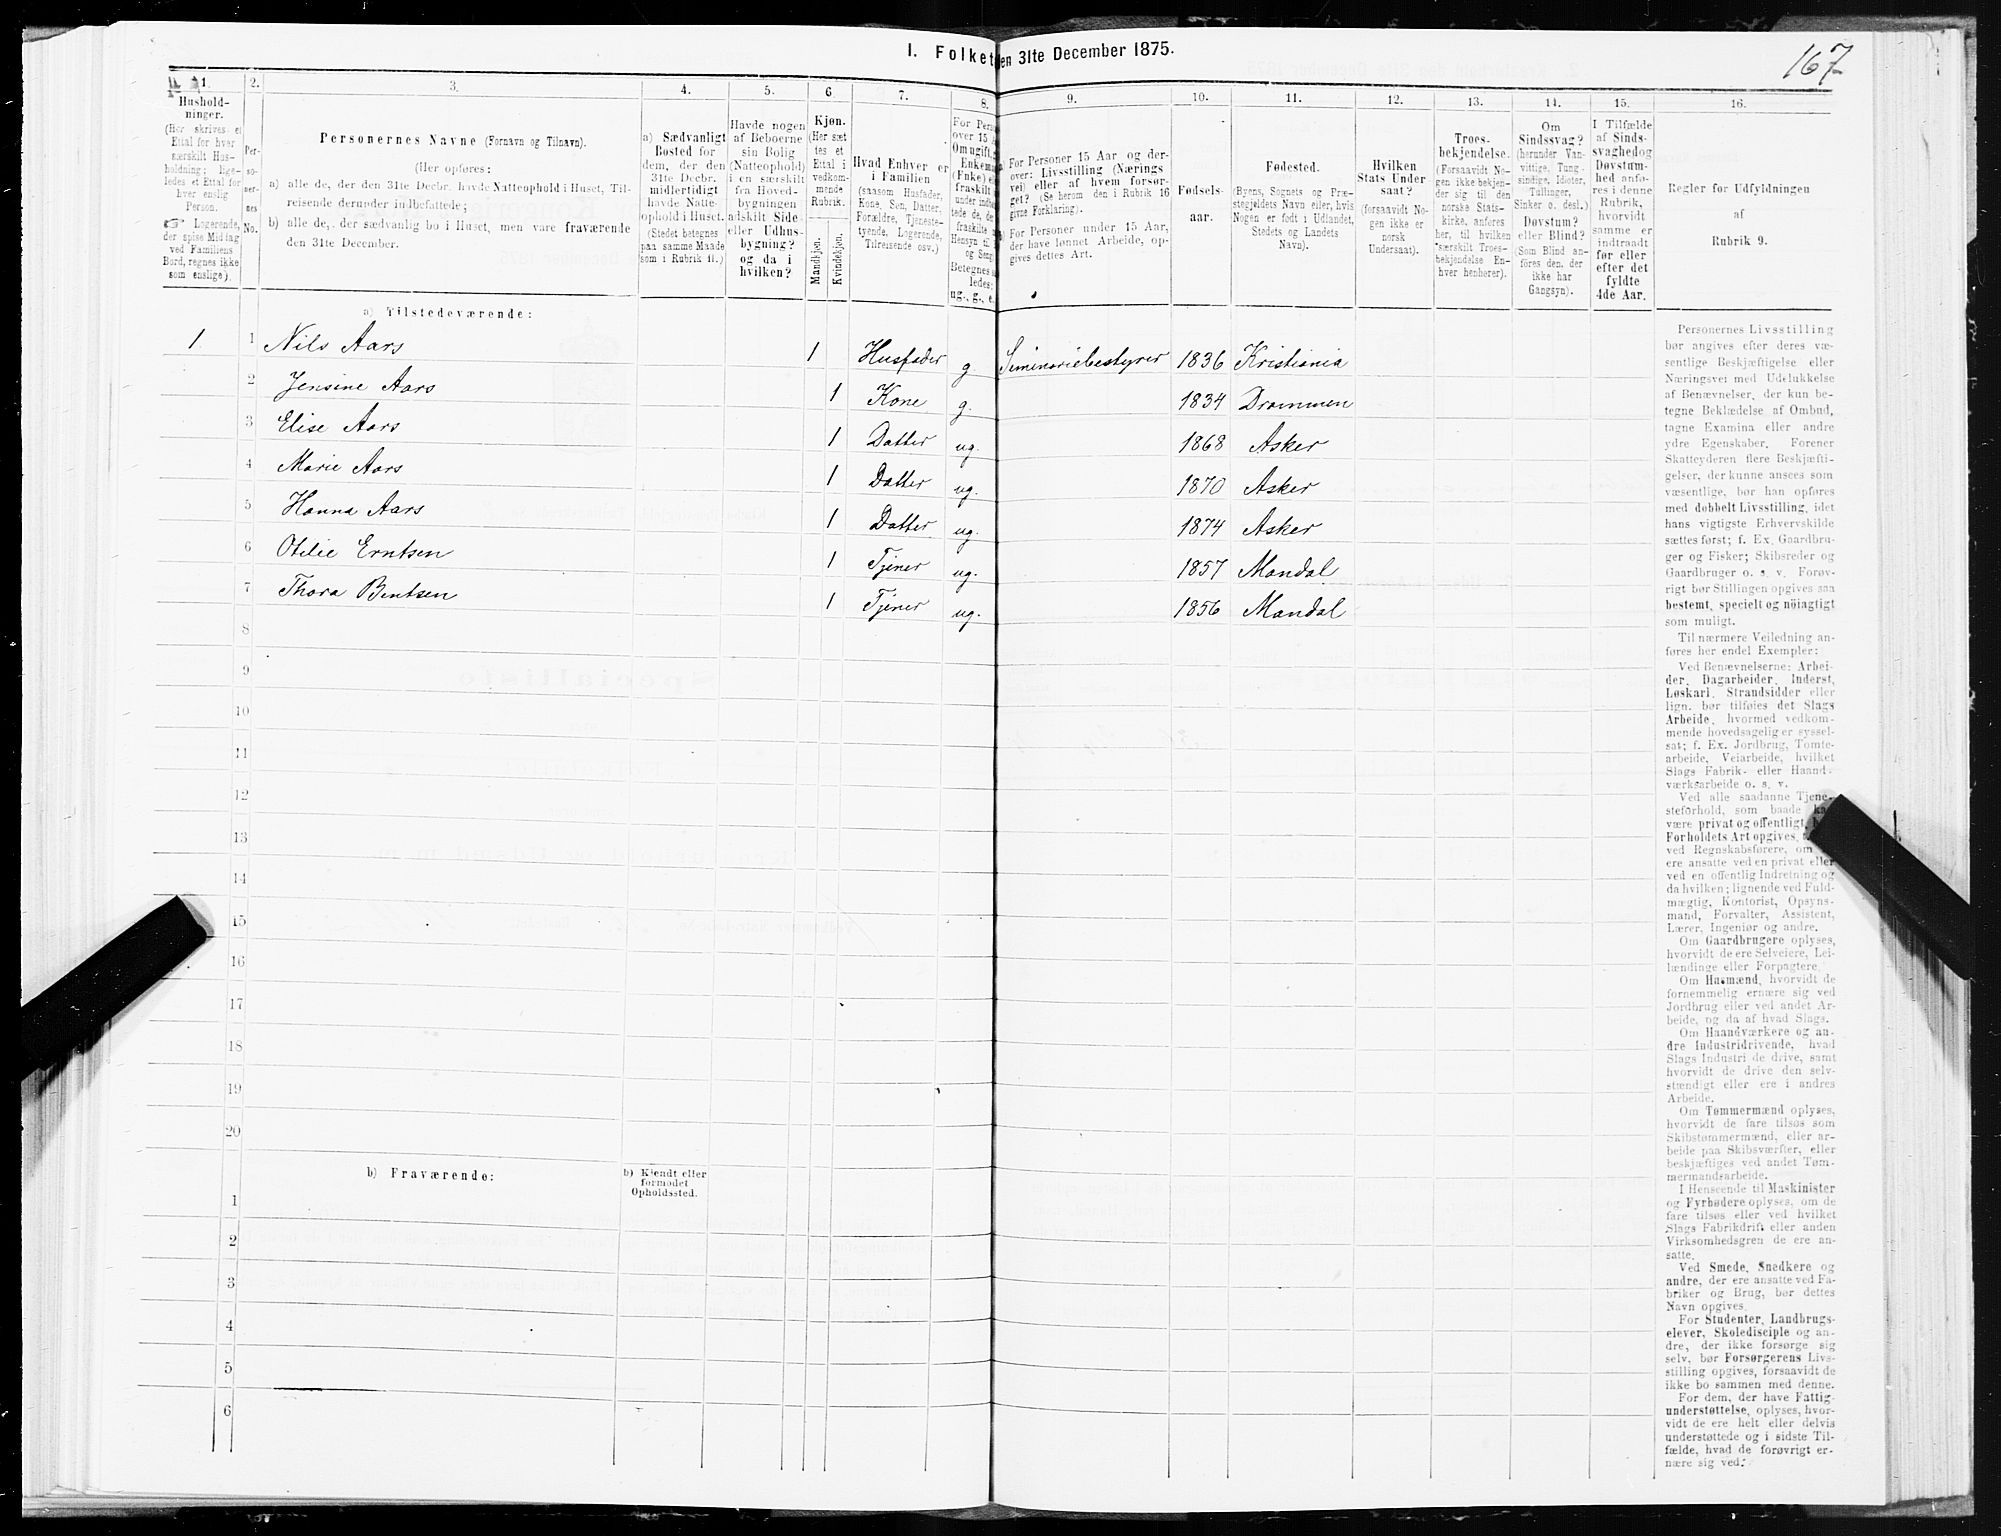 167
I. Folket en 31te December 1875.
1. 2. 3. 4. 5. 6. 7. 8. 9. 10. 11. 12. 13. 14. 15. 16.
Hushold-
ninger.
(Her skrives et
Ettal for hver
særskilt Hus-
holdning; lige-
ledes et Ettal for
hver enslig
Person.
☞ Logerende,
der spise Middag
ved Familiens
Bord, regnes ikke
som enslige).
Per-
so-
ner-
nes
No.
Personernes Navne (Fornavn og Tilnavn).
(Her opføres:
a) alle de, der den 31te Decbr. havde Natteophold i Huset, Til-
reisende derunder indbefattede;
b) alle de, der sædvanlig bo i Huset, men vare fraværende
den 31te December.
a) Sædvanligt
Bosted for
dem, der den
31te Decbr.
midlertidigt
havde Natte-
ophold i Huset.
(Stedet betegnes
paa samme Maade
som i Rubrik 11.)
Havde nogen
af Beboerne
sin Bolig
(Natteophold)
i en særskilt
fra Hoved-
bygningen
adskilt Side-
eller Udhus-
bygning?
og da i
hvilken?
Kjøn.
(Her sæt
tes et
Ettal i
vedkom-
mende
Rubrik.
Mandkjøn.
Kvindekjøn.
Hvad Enhver er
i Familien
(saasom Husfader,
Kone, Søn, Datter,
Forældre, Tjeneste-
tyende, Logerende,
Tilreisende osv.)
For Pers
over 15 A
Om ugift,
Enkema
(Enke) e
fraskilt
under indbe
tede de, de
fraskilte
Hensyn til
og Seng
Betegnes
ledes:
ug., g., e.
a) For Personer 15 Aar og der-
over: Livsstilling (Nærings
vei) eller af hvem forsør-
get? (Se herom den i Rubrik 16
givne Forklaring).
b) For Personer under 15 Aar,
der have lønnet Arbeide, op-
gives dettes Art.
Fødsels-
aar.
Fødested.
(Byens, Sognets og Præ-
stegjeldets Navn eller, hvis
Nogen er født i Udlandet,
Stedets og Landets
Navn).
Hvilken
Stats Under
saat?
(forsaavidt No-
gen ikke er
norsk
Undersaat).
Troes-
bekjendelse.
(Forsaavidt No-
gen ikke bekjen-
der sig til den
norske Stats-
kirke, anføres
her, til hvilken
særskilt Troes-
bekjendelse En-
hver henhører).
Om
Sindssvag?
(herunder Van-
vittige, Tung-
sindige, Idioter,
Tullinger,
Sinker o. desl.)
Døvstum?
eller Blind?
(Som Blind an-
føres den, der
ikke har
Gangsyn).
I Tilfælde
af Sinds-
svaghed og
Døvstum-
hed anfø-
res i denne
Rubrik,
hvorvidt
samme er
indtraadt
før eller
efter det
fyldte
4de Aar.
Regler for Udfyldningen
af
Rubrik 9.
a) Tilstedeværende:
1 1 Nils Aars 1 Husfader g. Seminariebestyrer 1836 Kristiania
2 Jensine Aars 1 Kone g. 1834 Drammen
3 Elise Aars 1 Datter ug. 1868 Asker
4 Marie Aars 1 Datter ug. 1870 Asker
5 Hanna Aars 1 Datter ug. 1874 Asker
6 Otilie Erntsen 1 Tjener ug. 1857 Mandal
7 Thora Bentsen 1 Tjener ug. 1856 Mandal
8
9
10
11
12
13
14
15
16
17
18
19
20
b) Fraværende:
b) Kjendt eller
formodet
Opholdssted.
1
2
3
4
5
6
Personernes Livsstilling
bør angives efter deres væ-
sentlige Beskjæftigelse eller
Næringsvei med Udelukkelse
af Benævnelser, der kun be-
tegne Beklædelse af Ombud,
tagne Examina eller andre
ydre Egenskaber. Forener
Skatteyderen flere Beskjæfti-
gelser, der kunne ansees som
væsentlige, bør han opføres
med dobbelt Livsstilling, idet
hans vigtigste Erhvervskilde
sættes først; f. Ex. Gaardbru-
ger og Fisker; Skibsreder og
Gaardbruger o. s. v. Forøv-
rigt bør Stillingen opgives saa
bestemt, specielt og nøiagtigt
som muligt.
Til nærmere Veiledning an-
føres her endel Exempler:
Ved Benævnelserne: Arbei-
der, Dagarbeider, Inderst,
Løskari, Strandsidder eller
lign. bør tilføies det Slags
Arbeide, hvormed vedkom-
mende hovedsagelig er syssel-
sat; f. Ex. Jordbrug, Tomte-
arbeide, Veiarbeide, hvilket
Slags Fabrik- eller Haand-
værksarbeide o. s. v.
Ved alle saadanne Tjene-
steforhold, som baade ka
være privat og offentligt,
Forholdets Art opgives,
ved Regnskabsførere, om
ere ansatte ved en privat eller
ved en offentlig Indretning og
da hvilken; lignende ved Fuld-
mægtig, Kontorist, Opsyns-
mand, Forvalter, Assistent,
Lærer, Ingeniør og andre.
Om Gaardbrugere oplyses,
hvorvidt de ere Selveiere, Lei-
lændinge eller Forpagtere.
Om Husmænd, hvorvidt de
fornemmelig ernære sig ved
Jordbrug eller ved andet Ar-
beide, og da af hvad Slags.
Om Haandværkere og an-
dre Industridrivende, hvad
Slags Industri de drive, samt
hvorvidt de drive den selv-
stændigt eller ere i andres
Arbeide.
Om Tømmermænd oplyses,
hvorvidt de fare tilsøs som
Skibstømmermænd, eller ar-
beide paa Skibsværfter, eller
beskjæftiges ved andet Tøm-
mermandsarbeide.
I Henseende til Maskinister
og Fyrbødere oplyses, om de
fare tilsøs eller ved hvilket
Slags Fabrikdrift eller anden
Virksomhedsgren de ere an-
satte.
Ved Smede, Snedkere og
andre, der ere ansatte ved Fa-
briker og Brug, bør dettes
Navn opgives.
For Studenter, Landbrugs-
elever, Skoledisciple og an-
dre, der ikke forsørge sig
selv, bør Forsørgerens Livs-
stilling opgives, forsaavidt de
ikke bo sammen med denne.
For dem, der have Fattig-
understøttelse, oplyses, hvor-
vidt de ere helt eller delvis
understøttede og i sidste Til-
fælde, hvad de forøvrigt er-
nære sig ved.